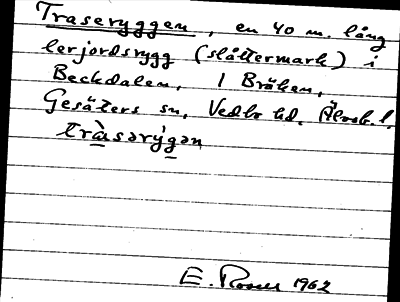 Traseryggen, en 40 m. lång
lerjordsrygg (slåttermark) i
Beckdalen, 1 Bräcken,
Gesäters sn, Vedbo hd, Älvsb. l.
tràsərýgən
E. Rosell 1962